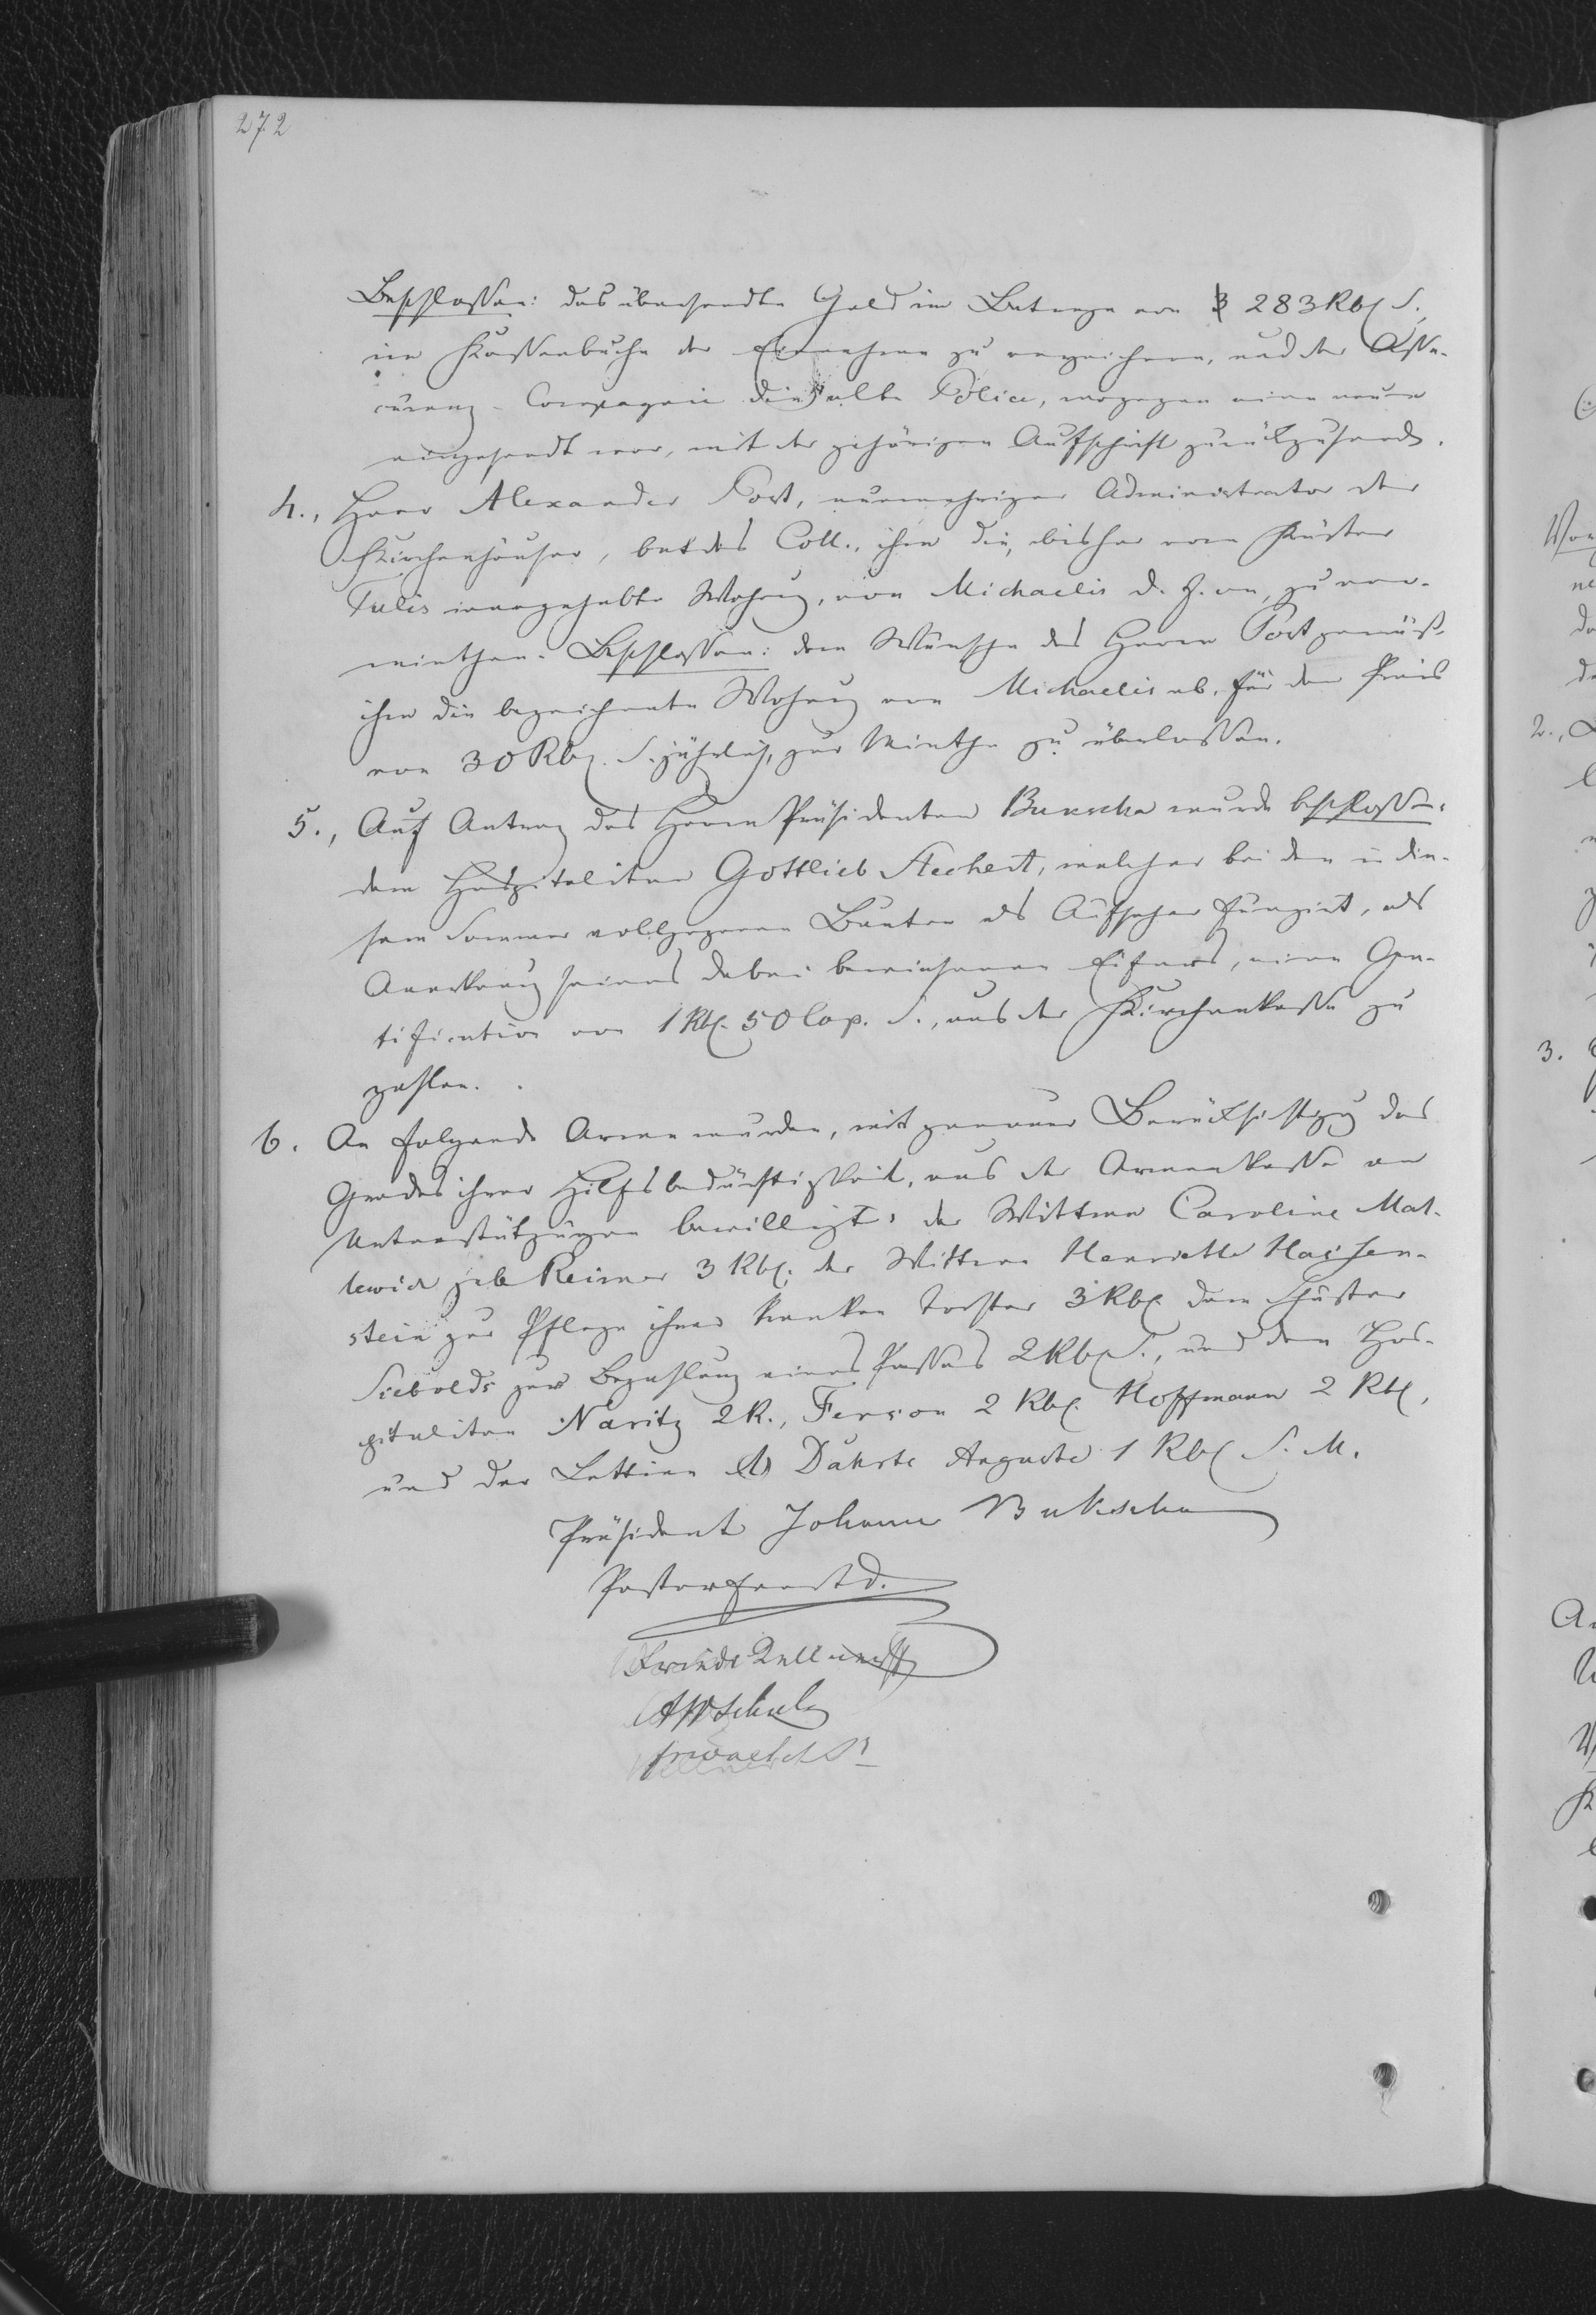 272
Beschlossen: das übersandte Geld im Betrage von 283 Rbl S.,
im Kassenbuche der Einnahme zu verzeichnen, und der Asse-
curanz-Compagnie dieselbe Police, wogegen eine neue
eingesandt war, mit der gehörigen Aufschrift zurückzusenden.
4., Herr Alexander Post, nunmehriger Administrator der
Kirchenhäuser, bat das Coll., ihm die, bisher vom Küster
Tulis innegehabte Wohnung, von Michaelis d. J. an, zu ver-
miethen. Beschlossen: dem Wunsche des Herrn Post gemäß
ihm die bezeichnete Wohnung von Michaelis ab, für den Preis
von 30 Rbl. S. jährlich, zur Miethe zu überlassen.
5., Auf Antrag des Herrn Präsidenten wurde beschlossen:
dem Hospitaliten Gottlieb Stechert, welcher bei den in die-
sem Sommer vollzogenen Bauten als Aufseher fungirt, als
Anerkennung seines dabei bewiesenen Eifers, eine Gra-
tification von 1 Rbl. 50 Cop. S., aus der Kirchenkasse zu
zahlen.
6. An folgende Arme wurden, mit genauer Berücksichtigung des
Grades ihrer Hilfsbedürftigkeit, aus der Armenkasse an
Unterstützungen bewilligt: der Wittwe Caroline Mat-
lewicz geb Reimer 3 Rbl; der Wittwe Henriette Haisen-
stein zur Pflege ihrer kranken Tochter 3 Rbl. dem Schuster
Siebolds zur Bezahlung eines Passes 2 Rbl S., und den Hos-
pitaliten Naritz 2 R., Ferson 2 Rbl. Hoffmann 2 Rbl,
und der Lettin Dahrte Auguste 1 Rbl S. M.
Präsident Johann
Pastor
Friedr
AW Schulz